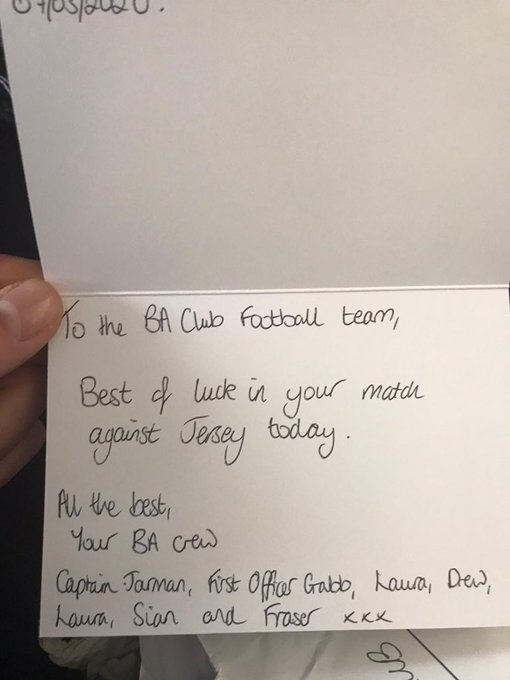 07/03/2020.
To the BA Club Football team,
Best of luck in your match
against Jersey today.
All the best,
Your BA crew
Captain Jarman, First Officer Gabb, Laura, Drew,
Laura, Sian and Fraser xxx